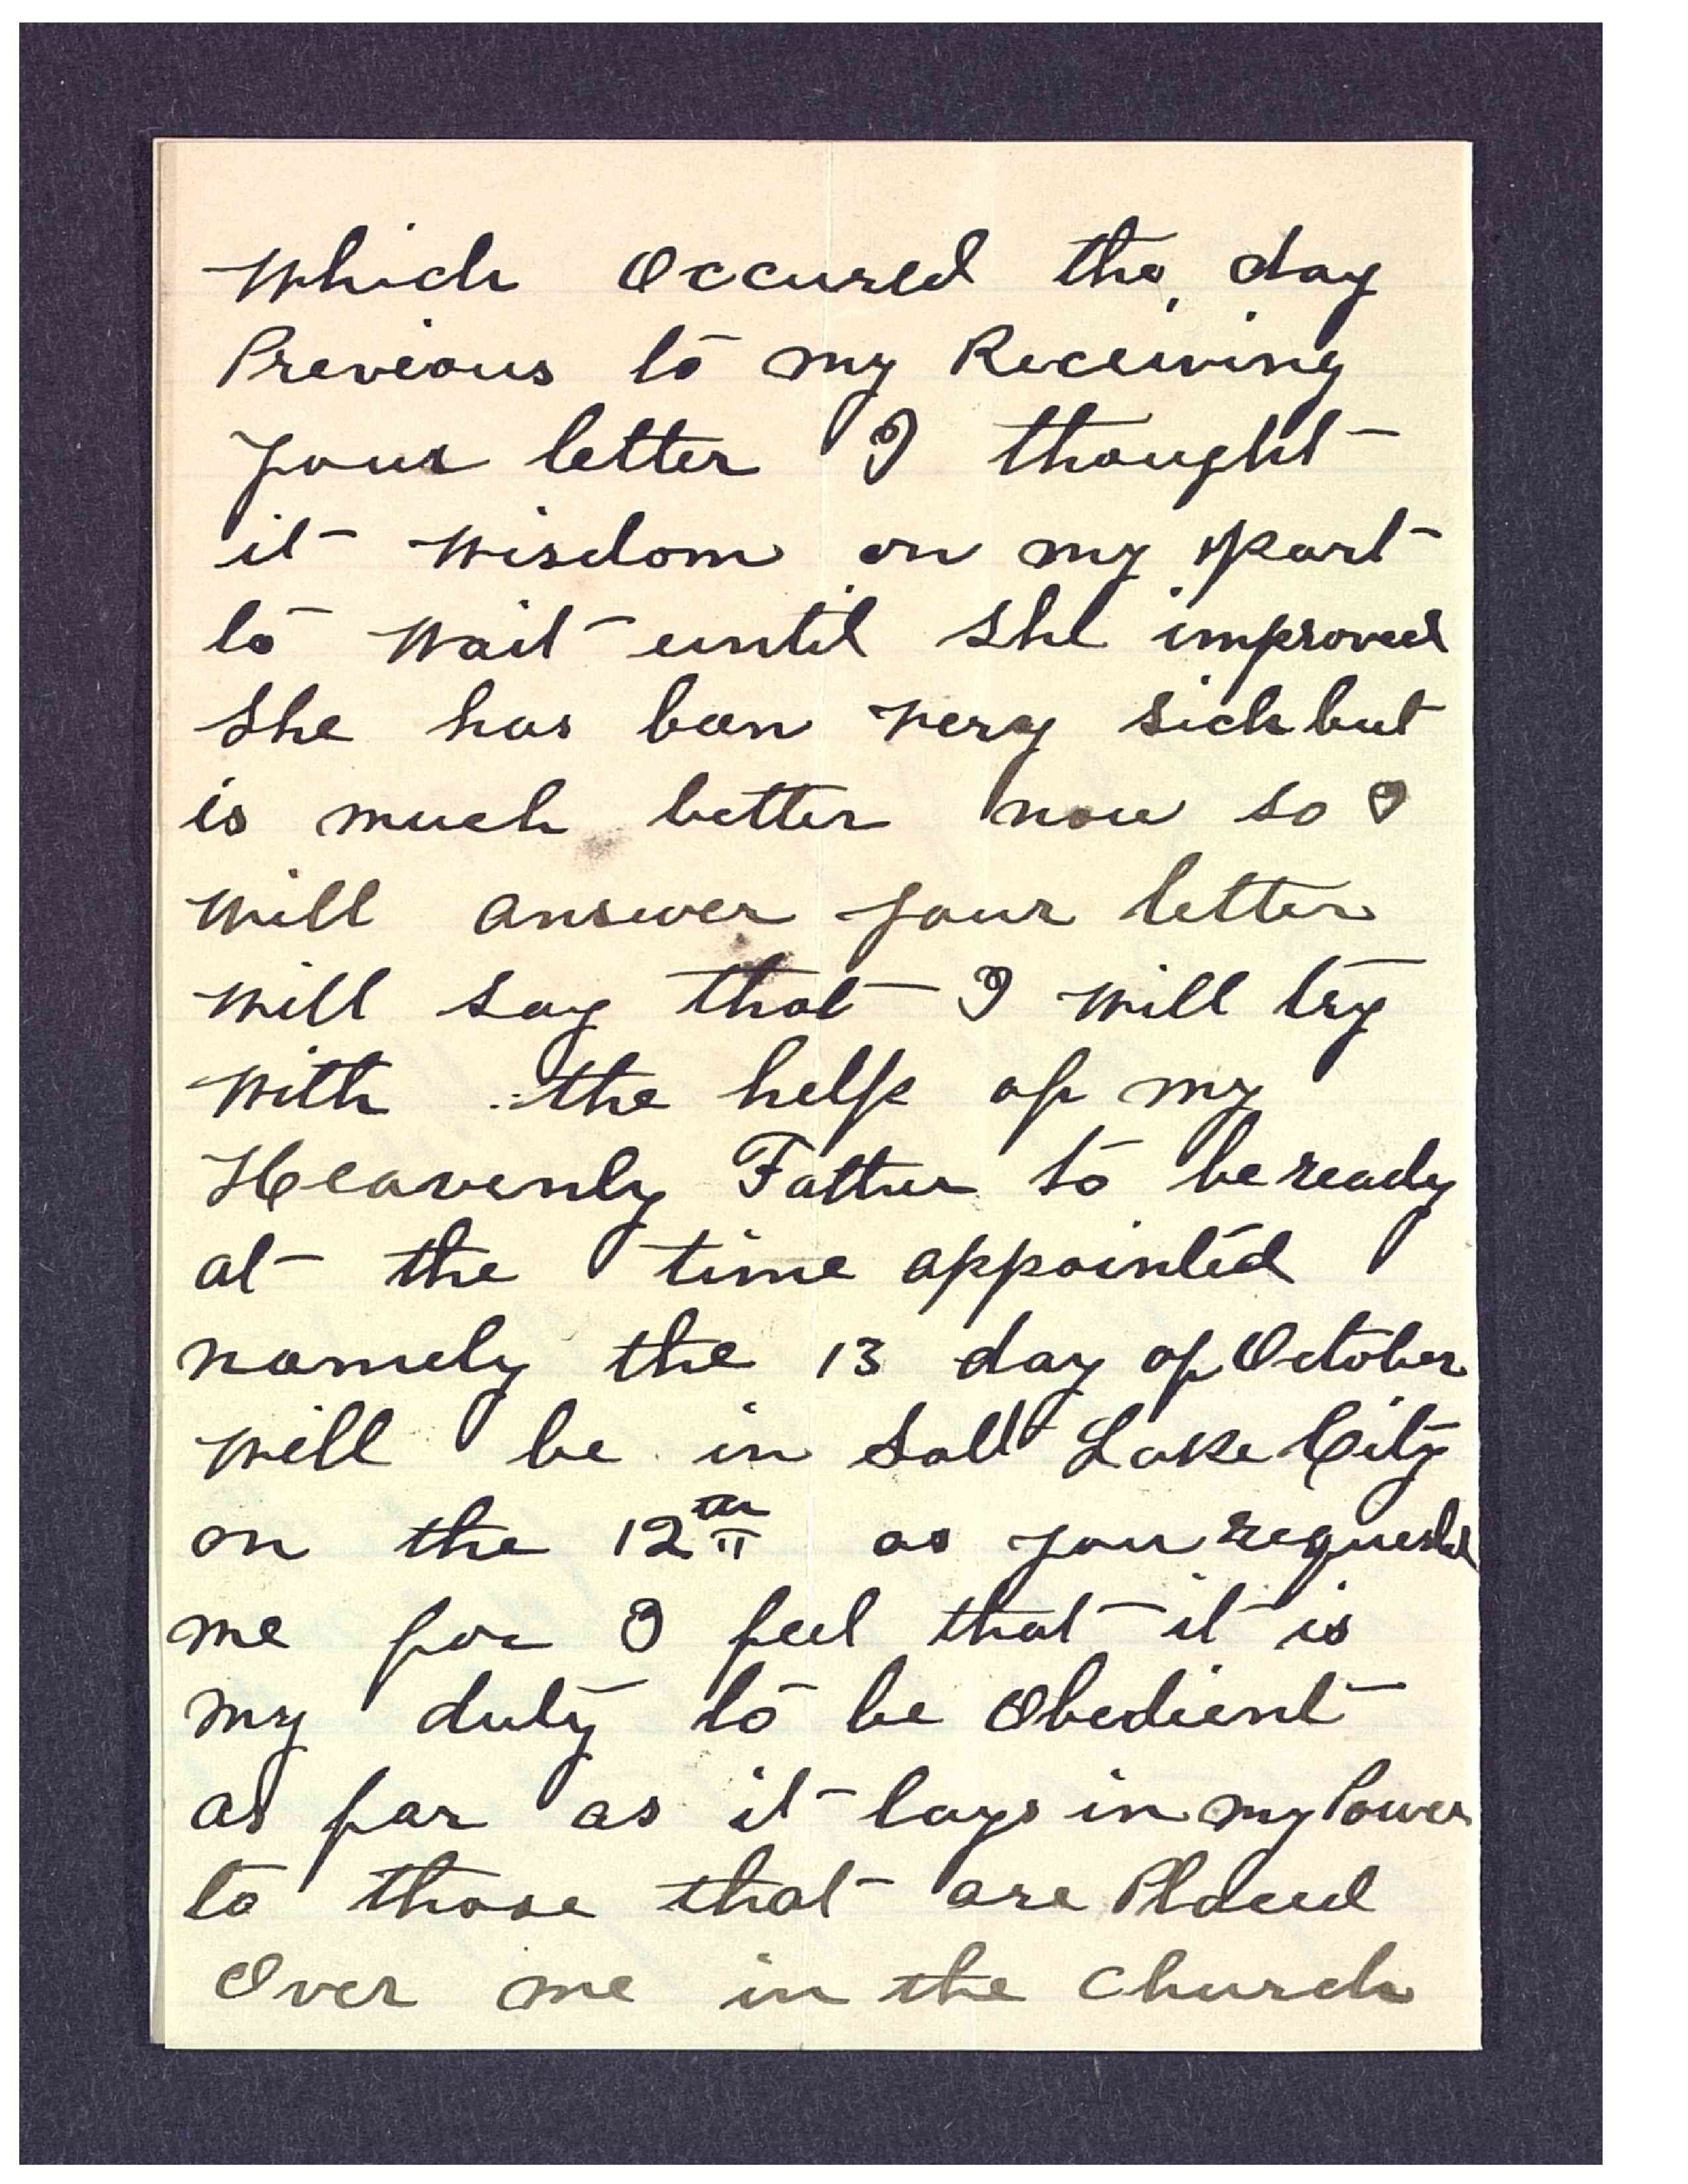 which Occured the day
Previous to my Receiving
your letter I thought
it wisdom on my part
to wait until she improved
She has been very sick but
is much better now so I
will answer your letter
will say that I will try
with the help of my
Heavenly Father to be ready
at the time appointed
namely the 13 day of October
will be in Salt Lake City
on the 12th as you requested
me for I feel that it is
my duty to be Obedient
as far as it lays in my Power
to those that are Placed
Over me in the Church